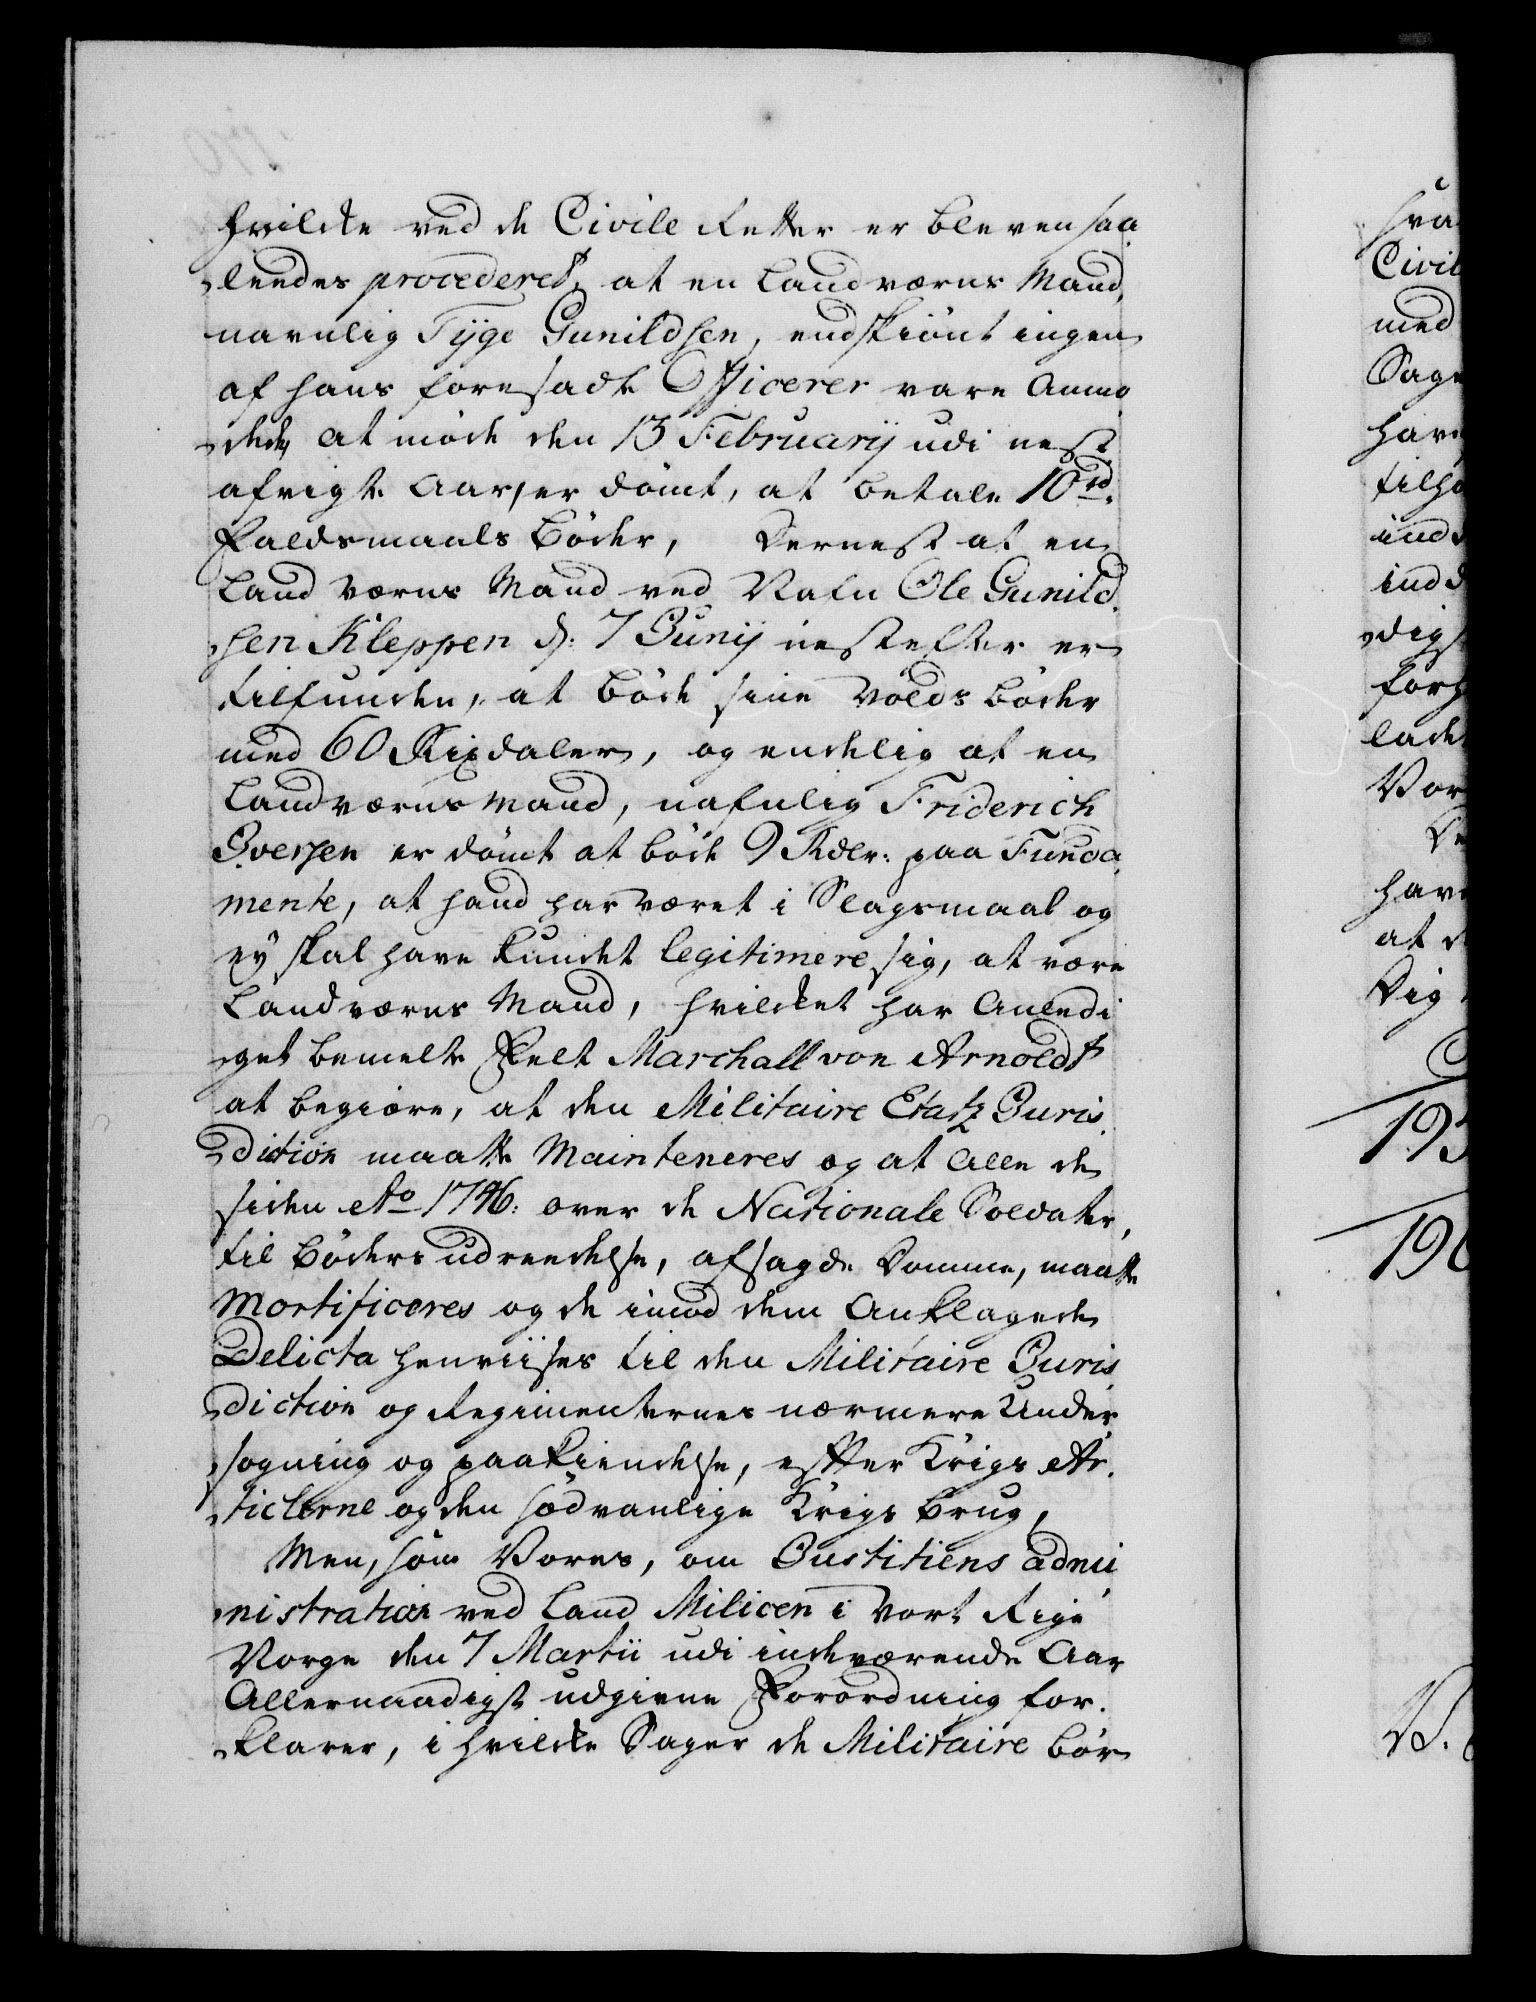 hvilcke ved de Civile Retter er bleven saa
ledes procederet, at en Landværns Mand,
navnlig Tyge Gunildsen, endskiönt ingen
af hans foresadte Officerer vare Anmo
dede, at möde den 13 Februarij udi nest
afvigte Aar, er dömt, at betale 10 rd.
Faldsmaals Böder, Dernest at en
Land Værns Mand ved Nafn Ole Gunild
sen Kleppen d: 7 Junij nestefter er
tilfunden, at böde sine Volds Böder
med 60 Rixdaler, og endelig at en
Landværns Mand, nafnlig Friderich
Iversen er dömt at böde 9 Rdlr: paa Funda
mente, at hand har været i Slagsmaal og
ey skal have kundet legitimere sig, at være
Landværns Mand, hvilcket har Anledi
get bemelte Felt Marchall von Arnoldt
at begiære, at den Militaire Etatz Juris
diction maatte Mainteneres og at Alle de
siden Ao 1746: over de Nationale Soldater,
til Böders udreedelse, afsagde Domme, maatte
Mortificeres og de imod dem Anklagede
Delicta henviises til den Militaire Juris
diction og Regimenternes nærmere Under
sögning og paakiendelse, efter Krigs Ar
ticlerne og den södvanlige Krigs Brug,
Men, som Vores, om Justitiens admi
nistration ved Land Milicen i Vort Rige
Norge den 7 Martii udi indeværende Aar
Allernaadigst udgivne Forordning for
klarer, i hvilcke Sager de Militaire bör
Civil
med
Sage
have
at d
Dig
193
190